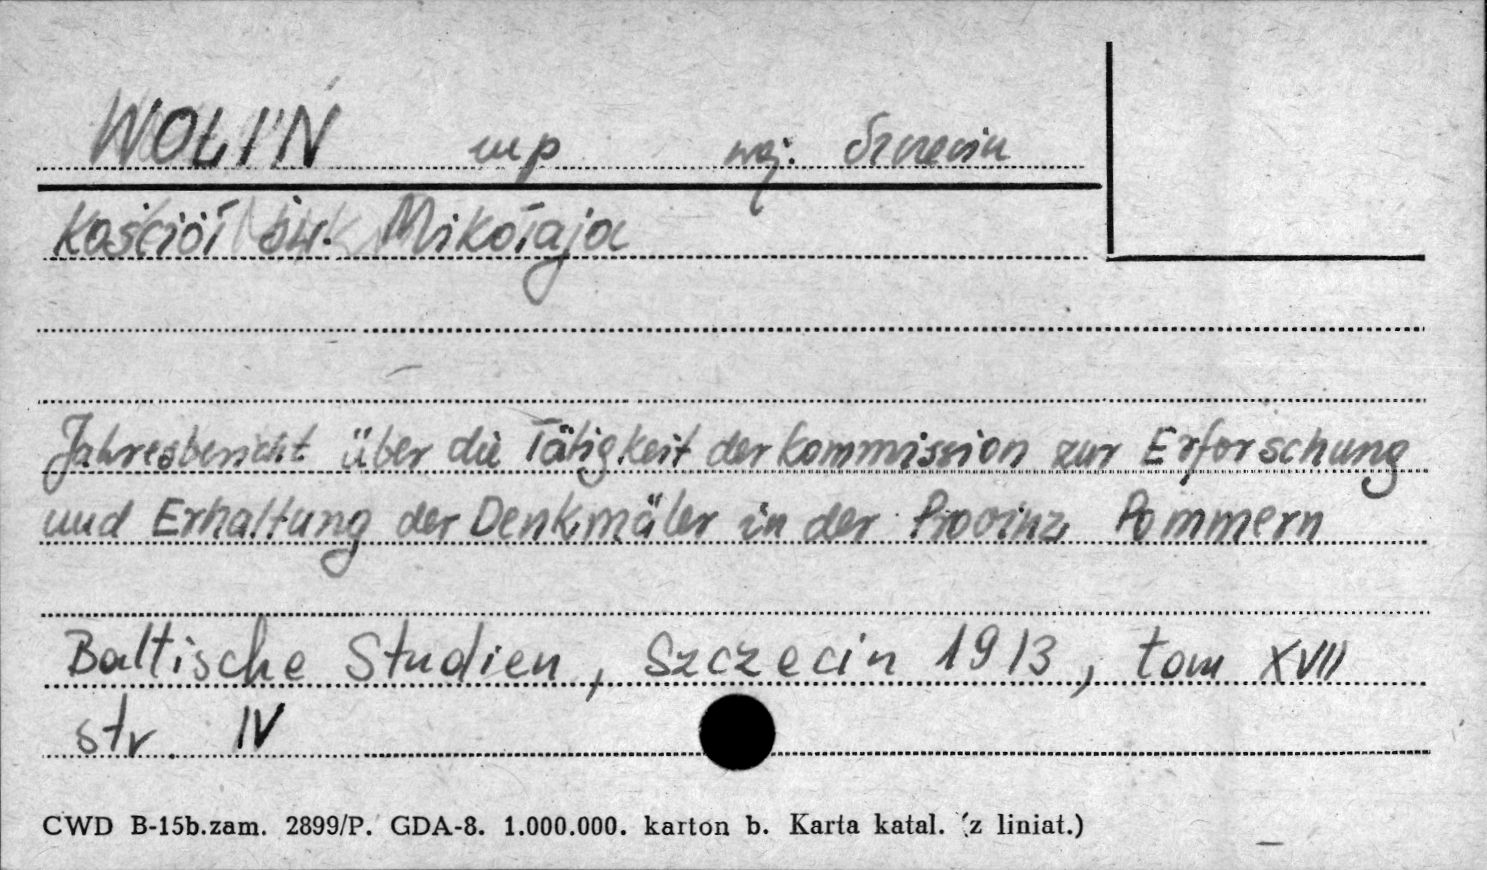 WOLIN mp woj. Szczecin
Kościół św. Mikołaja
Jahresbericht über die Tätigkeit der Kommission zur Erforschung
und Erhaltung der Denkmäler in der Provinz Pommern
Baltische Studien, Szczecin 1913, tom XVII
str. IV
CWD B-15b.zam. 2899/P. GDA-8. 1.000.000. karton b. Karta katal. (z liniat.)